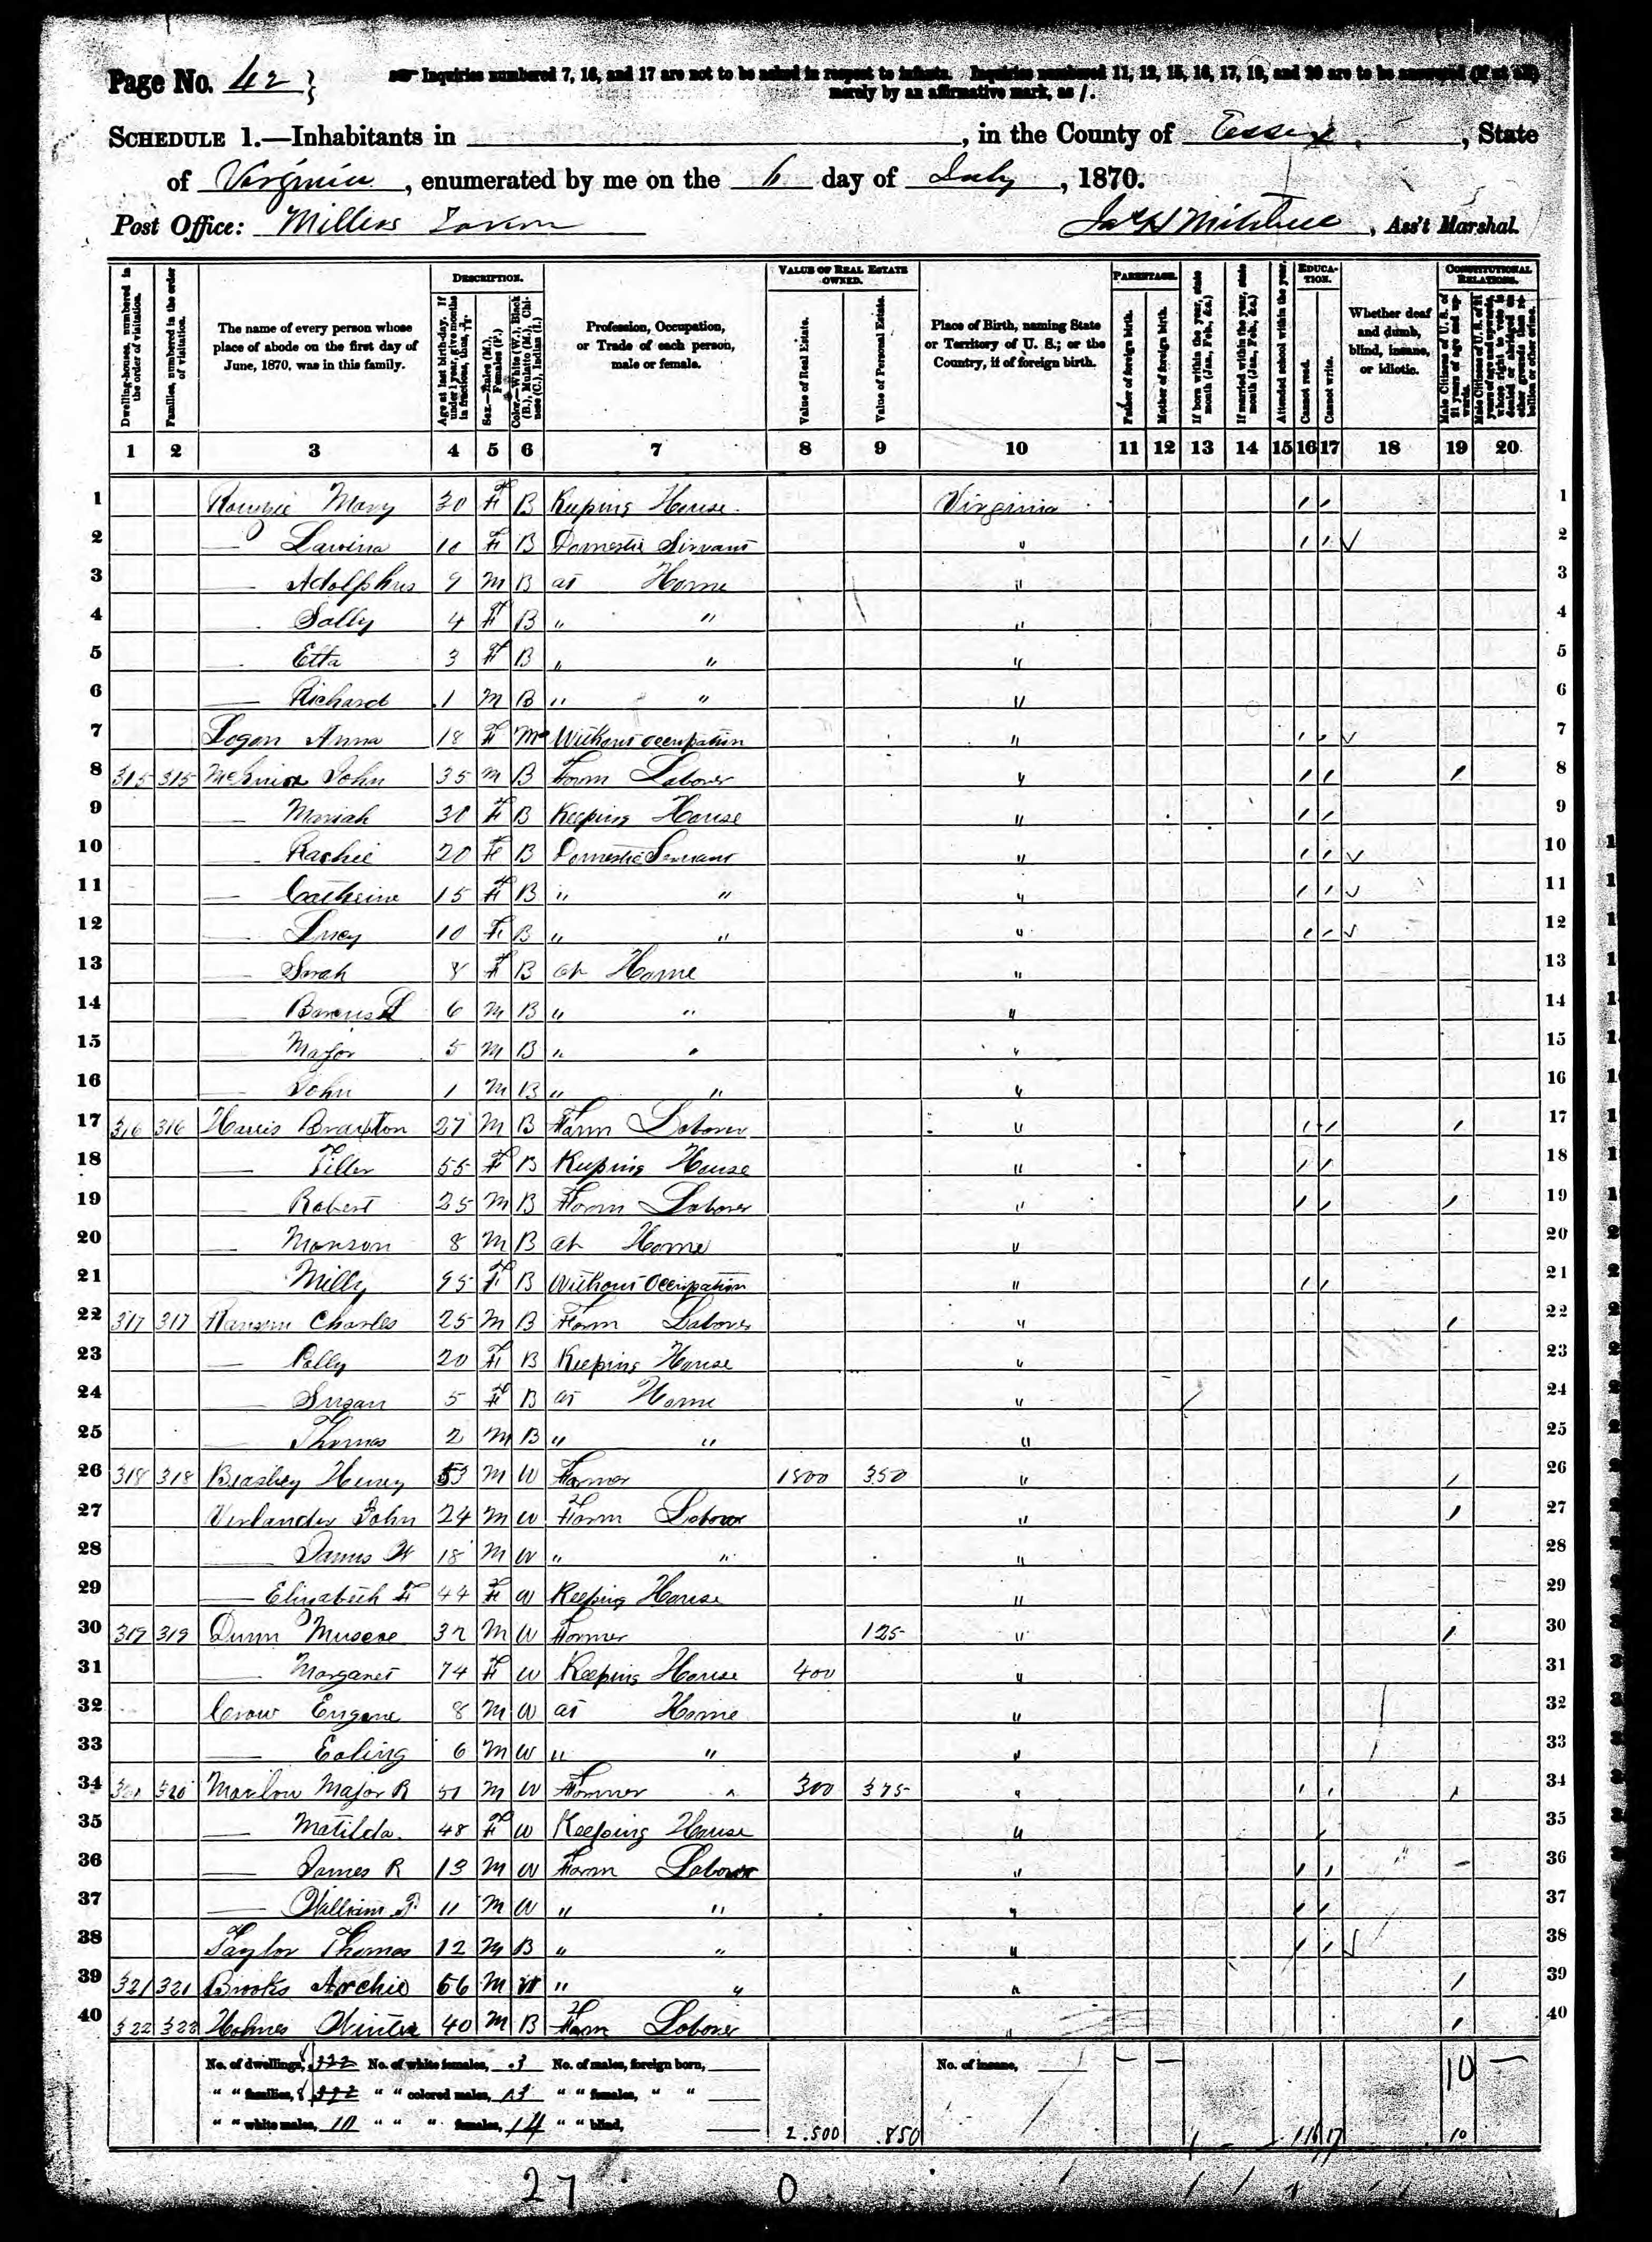 Page No. 42
Inquiries numbered 7, 16, and 17 are not to be asked in respect to infants. Inquiries numbered 11, 12, 15, 16, 17, 19, and 20 are to be answered (if at all)
merely by an affirmative mark, as /.
SCHEDULE 1.—Inhabitants in , in the County of Essex, State
of Virginia, enumerated by me on the 6 day of July, 1870.
Post Office: Millers Tavern Mitchell, Ass't Marshal.
Dwelling-houses, numbered in the order of visitation.
Families, numbered in the order of visitation.
The name of every person whose place of abode on the first day of June, 1870, was in this family.
DESCRIPTION.
Age at last birth-day. If under 1 year, give months in fractions, thus,
Sex.—Males (M.), Females (F.)
Color.—White (W.), Black (B.), Mulatto (M.), Chinese (C.), Indian (I.)
Profession, Occupation, or Trade of each person, male or female.
VALUE OF REAL ESTATE OWNED.
Value of Real Estate.
Value of Personal Estate.
Place of Birth, naming State or Territory of U. S.; or the Country, if of foreign birth.
PARENTAGE.
Father of foreign birth.
Mother of foreign birth.
If born within the year, state month (Jan., Feb., &c.)
If married within the year, state month (Jan., Feb., &c.)
Attended school within the year.
EDUCATION.
Cannot read.
Cannot write.
Whether deaf and dumb, blind, insane, or idiotic.
CONSTITUTIONAL RELATIONS.
Male Citizens of U. S. of 21 years of age and upwards.
1 2 3 4 5 6 7 8 9 10 11 12 13 14 15 16 17 18 19 20
1 Mary 30 F B Keeping House Virginia / / 1
2 — Lavina 10 F B Domestic Servant " / / √ 2
3 — Adolphus 9 M B at Home " 3
4 — Sally 4 F B " " " 4
5 — Etta 3 F B " " " 5
6 — Richard 1 M B " " " 6
7 Logan Anna 18 F M Without occupation " / / √ 7
8 315 315 John 35 M B Farm Laborer " / / / 8
9 — Mariah 30 F B Keeping House " / / 9
10 — 20 F B Domestic Servant " / / √ 10
11 — Catherine 15 F B " " " / / √ 11
12 — Lucy 10 F B " " " / / √ 12
13 — Sarah 8 F B at Home " 13
14 — 6 M B " " " 14
15 — Major 5 M B " " " 15
16 — John 1 M B " " " 16
17 316 316 Harris Braxton 27 M B Farm Laborer " / / / 17
18 — Tiller 55 F B Keeping House " / / 18
19 — Robert 25 M B Farm Laborer " / / / 19
20 — Monson 8 M B at Home " 20
21 Milly 95 F B Without Occupation " / / 21
22 317 317 Ransom Charles 25 M B Farm Laborer " / 22
23 — Polly 20 F B Keeping House " 23
24 — Susan 5 F B at Home " 24
25 — Thomas 2 M B " " " 25
26 318 318 Beasley Henry 53 M W Farmer 1800 350 " / 26
27 Verlander John 24 M W Farm Laborer " / 27
28 — James W 18 M W " " " 28
29 — Elizabeth F 44 F W Keeping House " 29
30 319 319 Dunn Muscoe 32 M W Farmer 125 " / 30
31 — Margaret 74 F W Keeping House 400 " 31
32 Crow Eugene 8 M W at Home " 32
33 — Ealing 6 M W " " " 33
34 320 320 Marlow Major R 51 M W Farmer 300 375 " / / / 34
35 — Matilda 48 F W Keeping House " / 35
36 — James R 13 M W Farm Laborer " / / 36
37 — William 11 M W " " " / / 37
38 Taylor Thomas 12 M B " " " / / √ 38
39 321 321 Brooks Archie 56 M W " " " / 39
40 322 322 Holmes Winter 40 M B Farm Laborer " / 40
No. of dwellings, 8 322 No. of white females, 3 No. of males, foreign born, No. of insane, 10
" " families, 8 322 " " colored males, 13 " " females, " "
" " white males, 10 " " " females, 14 " " blind, 2.500 .850 16 17 10
27 0